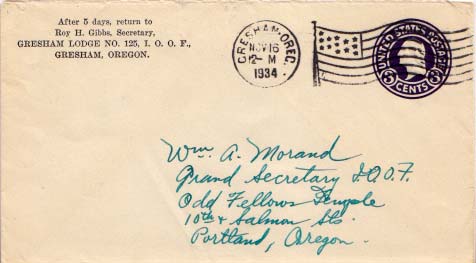 After 5 days, return to
Roy H. Gibbs, Secretary,
GRESHAM LODGE NO. 125, I. O. O. F.,
GRESHAM, OREGON.
GRESHAM, OREG.
NOV 16
12-M
1934
UNITED STATES POSTAGE
3 CENTS 3
Wm. A. Morand
Grand Secretary I.O.O.F.
Odd Fellows Temple
10th & Salmon Sts.
Portland, Oregon.